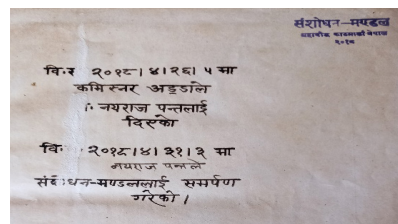 संशोधन-मण्डल
काठमाडौं नेपाल
२०१८
वि॰ २०१८।४।२६।५ मा
कमिस्नर अड्डाले
नयराज पन्तलाई
दिएको
वि॰ २०१८।४।३१।३ मा
नयराज पन्तले
धन-मण्डललाई समर्पण
गरेको।